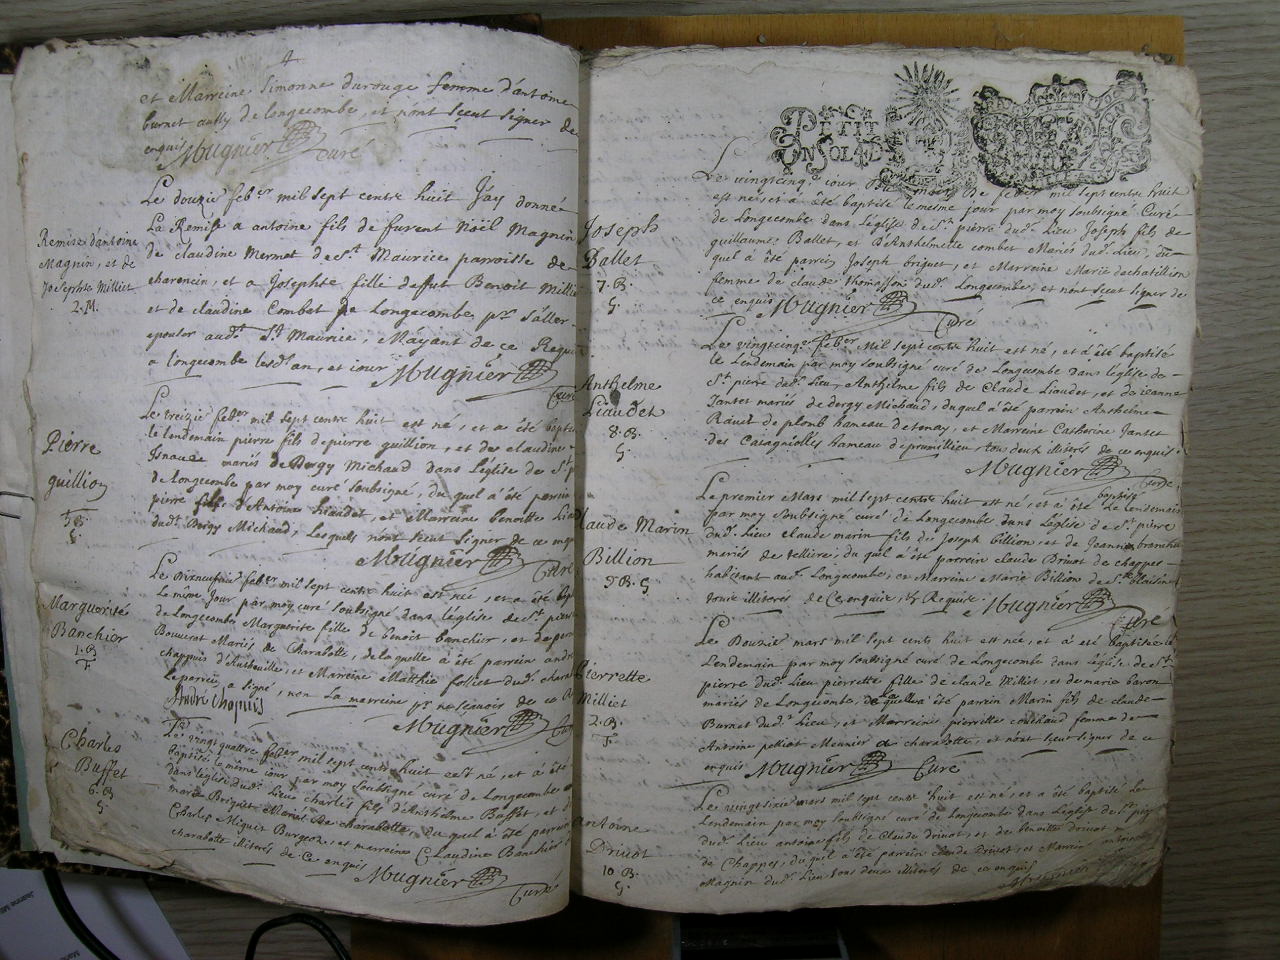 4
et Marreine Simonne durouge femme d'antoine
burnet aussy de Longecombe, et n'ont sceut signer de
enquis Mugnier Curé
Le douzie feb.er mil sept centz huit J'ay donné
La Remise a antoine fils de furent Noël Magnin
de claudine Mermet de S.t Maurice parroisse de
charencin, et a Josephte fille deffut Benoit Millie
et de claudine Combet de Longecombe, pr s'aller
epouser aud.t S.t Maurice, M'ayant de ce Requi
a longecombe lesd. an, et iour Mugnier
Curé
Remise d'antoine
Magnin, et de
Josephte Milliet
2. M.
Le treizie feb.er mil sept centz huit est né, et a été bapti
le lendemain pierre fils de pierre guillion, et de claudine
mariés de Dergy Michaud dans L'eglise de S.t p
de Longecombe par moy curé soubsigné, du quel a été parrin
pierre fils d'Antoine Liaudet, et Marreine benoitte Liau
dud.t Dergy Michaud, Lesquels n'ont sceut signer de ce enqu
Mugnier Curé
Pierre
guillion
5. B.
G.
Le dixneufvie feb.er mil sept centz huit est née, et a été bap
Le même Jour par moy curé soubsigné dans L'église de S.t pierr
de Longecombe Marguerite fille de benoit banchier, et de per
Bouverat Mariés de Charabotte, de laquelle a été parrein andré
chappuis d'Auteville, et Marreine Matthie folliet dud. charab
Le parrein a signé, non La marreine pr ne sçavoir de ce
André Chapuis
Mugnier Curé
Marguerite
Banchier
1. B
F.
Le vingt quattre feb.er mil sept centz huit est né, et à été
baptisé le même iour par moy soubsigné curé de Longecombe
dans L'eglise dud. Lieu charles fils d'Anthelme Buffet, et d
marie Briguet Mariés de charabotte, du quel a été parrein
Charles Miguet Burgeoz, et marreine Claudine Banchier
charabotte illiterés de Ce enquis Mugnier
Curé
Charles
Buffet
6. B
G.
PETIT
EN SOL 4 D
Le vingtcinq.e iour du mois de feb.er mil sept centz huit
est né, et a été baptisé le mesme jour par moy soubsigné Curé
de Longecombe dans L'église de S.t pierre dud. Lieu Joseph fils de
guillaume Ballet, et d'Anthelmette combet Mariés dud. Lieu, du
quel a été parrein Joseph briguet, et Marreine Marie dechatillion
femme de claude Thomasson dud. Longecombe, et n'ont sceut signer de
ce enquis Mugnier Curé
Joseph
Ballet
7. B.
G.
Le vingtcinq.e feb.er mil sept centz huit est né, et à été baptisé
le Lendemain par moy soubsigné curé de Longecombe dans L'eglise de
S.t pierre dud. Lieu, Anthelme fils de Claude Liaudet, et de jeanne
Jantet mariés de dergy Michaud, duquel a été parrein Anthelme
Ravet de plomb hameau de tenay, et Marreine Catherine Jantet
des Catagniolles hameau de prumillieu, tous deux illiterés de ce enquis
Mugnier Curé
Anthelme
Liaudet
8. B.
G.
Le premier Mars mil sept centz huit est né, et a été baptisé Le Lendemain
par moy soubsigné curé de Longecombe dans L'eglise de S.t pierre
dud. Lieu claude marin fils de Joseph billion, et de Jeanne branche
mariés de tellière, du quel a été parrein claude Drivot de chappes
habitant aud. Longecombe, et Marreine Marie Billion de S.t
tous illiterés de Ce enquis, et Requis Mugnier
Curé
Claude Marin
Billion
9 B. G
Le Douzie mars mil sept centz huit est née, et a été Baptisée le
Lendemain par moy soubsigné curé de Longecombe dans L'eglise de S.t
pierre dud. Lieu pierrette fille de claude Milliet, et de marie baron
mariés de Longecombe, de Laquelle a été parrein Marin fils de claude
Burnet dud. Lieu, et Marreine pierrette couthaud femme de
Antoine pelliot Meunier de charabotte, et n'ont sceut signer de ce
enquis Mugnier Curé
Pierrette
Milliet
2. B
F.
Le vingtsixie mars mil sept centz huit est né, et a été baptisé Le
Lendemain par moy soubsigné curé de Longecombe dans L'eglise de S.t pierre
dud. Lieu antoine fils de Claude Drivot, et de benoitte drivot
de Chappes, du quel a été parrein claude Drivot, et Marrein
Magnin dud. Lieu tous deux illiterés de ce enquis
Mugnier
Antoine
Drivot
10 B.
G.